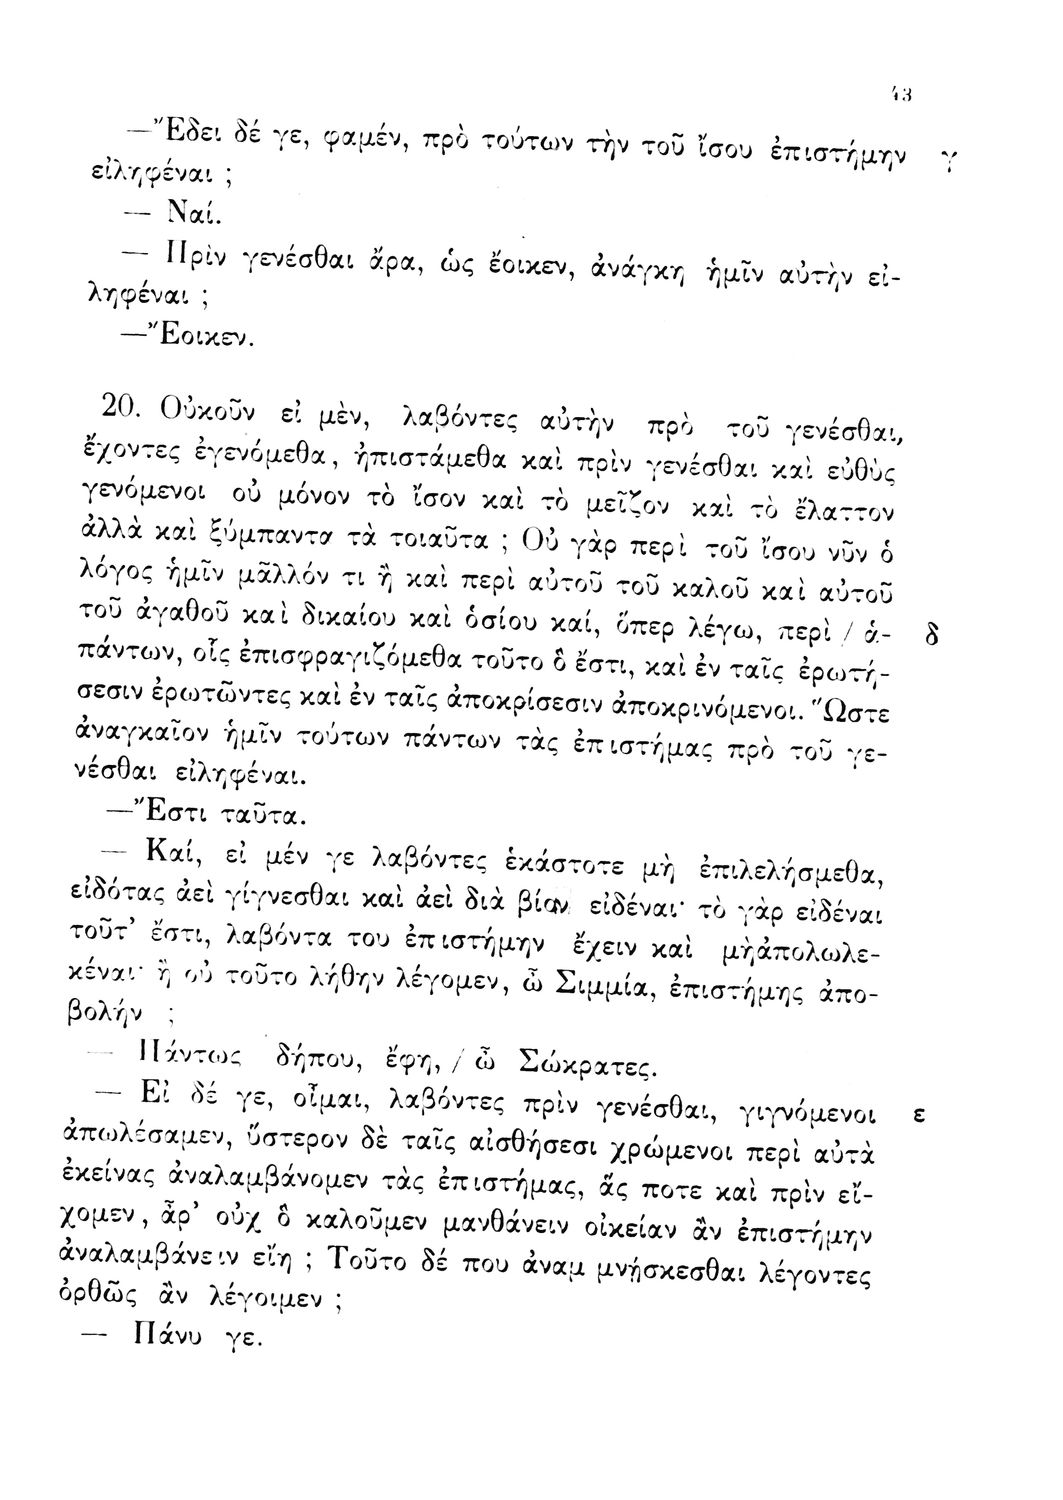 43
—Ἔδει δέ γε, φαμέν, πρὸ τούτων τὴν τοῦ ἴσου ἐπιστήμην γ
εἰληφέναι ;
— Ναί.
— Πρὶν γενέσθαι ἄρα, ὡς ἔοικεν, ἀνάγκη ἡμῖν αὐτὴν εἰ-
ληφέναι ;
—Ἔοικεν.
20. Οὐκοῦν εἰ μὲν, λαβόντες αὐτὴν πρὸ τοῦ γενέσθαι,
ἔχοντες ἐγενόμεθα, ἠπιστάμεθα καὶ πρὶν γενέσθαι καὶ εὐθὺς
γενόμενοι οὐ μόνον τὸ ἴσον καὶ τὸ μεῖζον καὶ τὸ ἔλαττον
ἀλλὰ καὶ ξύμπαντα τὰ τοιαῦτα ; Οὐ γὰρ περὶ τοῦ ἴσου νῦν ὁ
λόγος ἡμῖν μᾶλλόν τι ἢ καὶ περὶ αὐτοῦ τοῦ καλοῦ καὶ αὐτοῦ
τοῦ ἀγαθοῦ καὶ δικαίου καὶ ὁσίου καί, ὅπερ λέγω, περὶ / ἁ- δ
πάντων, οἷς ἐπισφραγιζόμεθα τοῦτο ὃ ἔστι, καὶ ἐν ταῖς ἐρωτή-
σεσιν ἐρωτῶντες καὶ ἐν ταῖς ἀποκρίσεσιν ἀποκρινόμενοι. Ὥστε
ἀναγκαῖον ἡμῖν τούτων πάντων τὰς ἐπιστήμας πρὸ τοῦ γε-
νέσθαι εἰληφέναι.
—Ἔστι ταῦτα.
— Καί, εἰ μέν γε λαβόντες ἑκάστοτε μὴ ἐπιλελήσμεθα,
εἰδότας ἀεὶ γίγνεσθαι καὶ ἀεὶ διὰ βίου εἰδέναι· τὸ γὰρ εἰδέναι
τοῦτ’ ἔστι, λαβόντα του ἐπιστήμην ἔχειν καὶ μὴἀπολωλε-
κέναι· ἢ οὐ τοῦτο λήθην λέγομεν, ὦ Σιμμία, ἐπιστήμης ἀπο-
βολήν ;
— Πάντως δήπου, ἔφη, / ὦ Σώκρατες.
— Εἰ δέ γε, οἶμαι, λαβόντες πρὶν γενέσθαι, γιγνόμενοι ε
ἀπωλέσαμεν, ὕστερον δὲ ταῖς αἰσθήσεσι χρώμενοι περὶ αὐτὰ
ἐκείνας ἀναλαμβάνομεν τὰς ἐπιστήμας, ἅς ποτε καὶ πρὶν εἴ-
χομεν, ἆρ’ οὐχ ὃ καλοῦμεν μανθάνειν οἰκείαν ἂν ἐπιστήμην
ἀναλαμβάνειν εἴη ; Τοῦτο δέ που ἀναμιμνήσκεσθαι λέγοντες
ὀρθῶς ἂν λέγοιμεν ;
— Πάνυ γε.